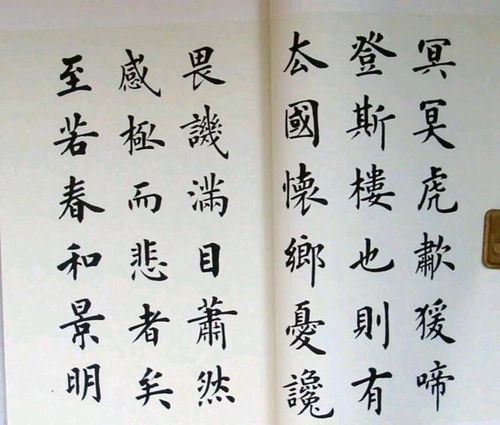 冥冥虎歗猨啼
登斯樓也則有
厺國懷鄉憂讒
畏譏滿目蕭然
感極而悲者矣
至若春和景明